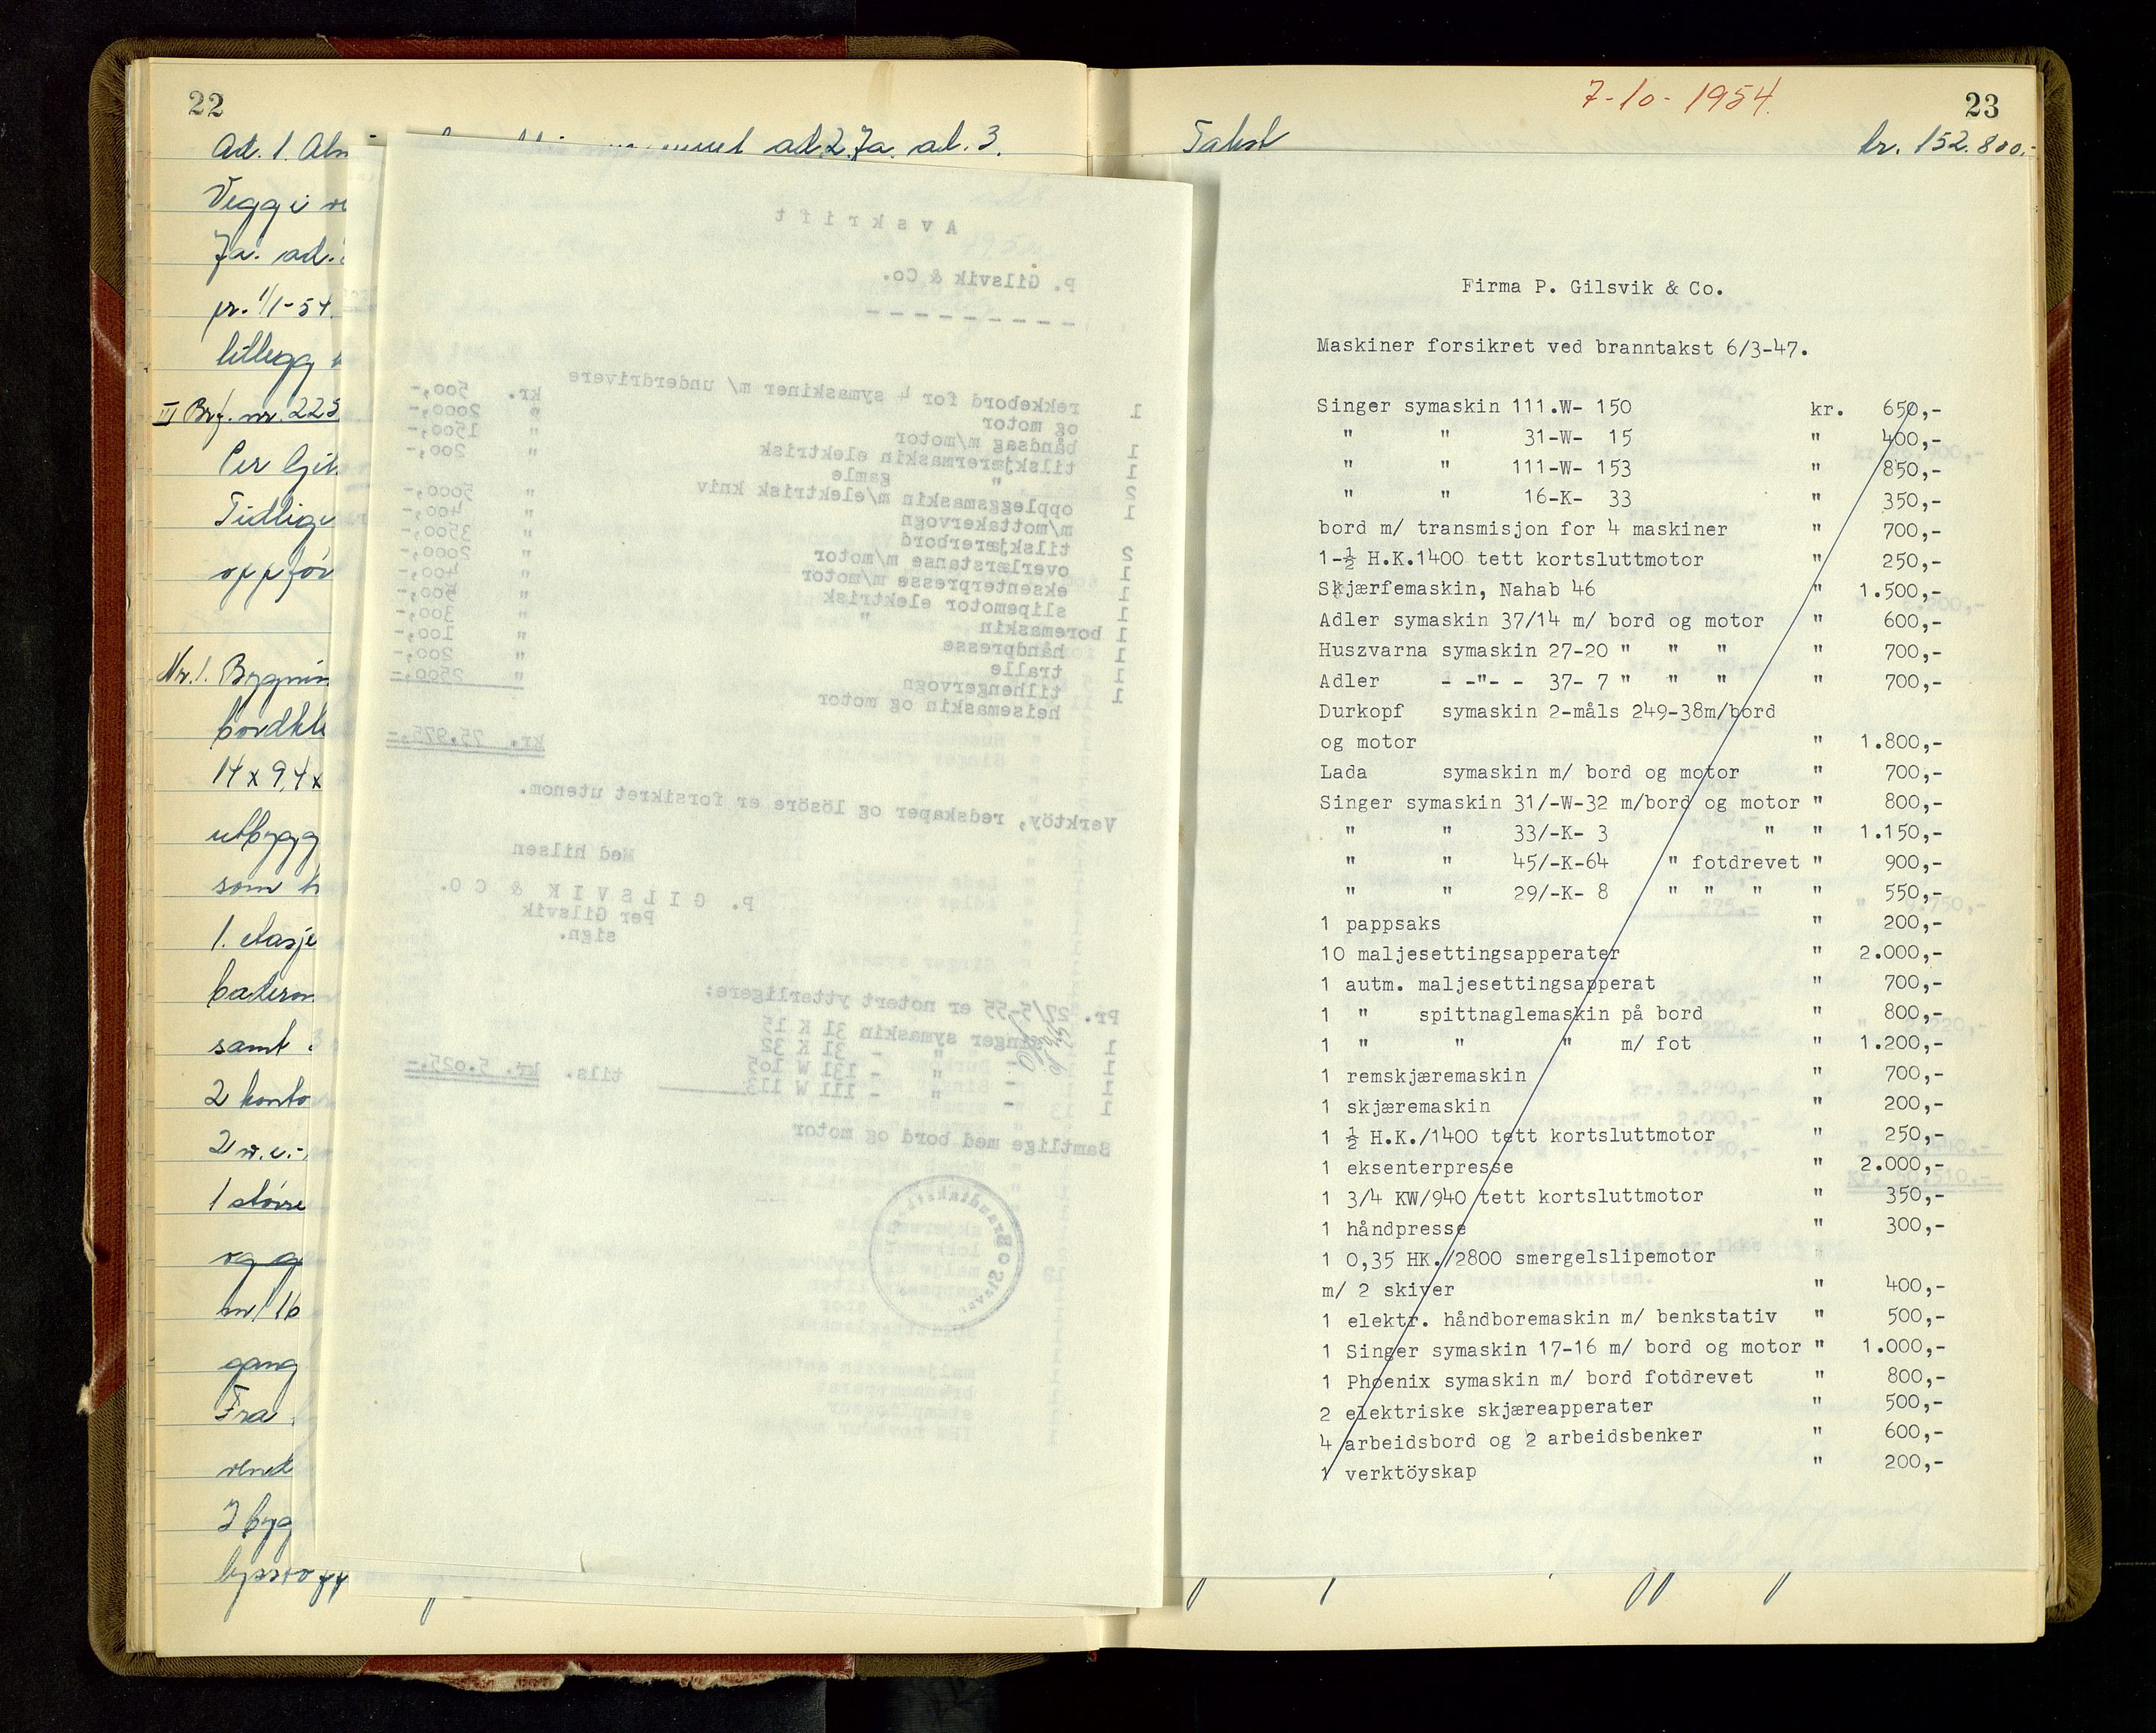 22
Ad. 1. Alm ad. 2. Ja. ad. 3.
Vegg i
Ja. ad.
pr. 1/1-54.
tillegg
III Brf. nr. 223
Per Gil
Tidliger
oppför
Nr. 1. Bygnin
bordkle
14 x 9,4 x
utbygg
som h
1. etasje
samt
2 konto
2 w.c.-
1 større
og g
m/ 16
gang
Fra
2 byg
Avskrift
P. Gilsvik & Co.
1 rekkebord for 4 symaskiner m/ underdrivere
og motor kr. 500,-
1 båndsag m/motor " 2000,-
1 tilskjærermaskin elektrisk " 1500,-
2 " gamle " 200,-
1 oppleggsmaskin m/elektrisk kniv
m/mottakervogn " 5000,-
2 tilskjærerbord " 400,-
1 overlærstanse m/motor " 3500,-
1 eksenterpresse m/motor " 2000,-
1 slipemotor elektrisk " 400,-
1 boremaskin " " 500,-
1 håndpresse " 300,-
1 tralle " 100,-
1 tilhengervogn " 200,-
1 heisemaskin og motor " 2500,-
kr. 75.975,-
Verktöy, redskaper og lösöre er forsikret utenom.
Med hilsen
P. GILSVIK & CO.
Per Gilsvik
sign.
Pr. 27/5-55 er notert ytterligere:
1 Singer symaskin 31 K 15
1 - " - 31 K 32
1 - " - 131 W 105
1 - " - 111 W 113 tils. kr. 5.025,-
Samtlige med bord og motor
7-10-1954.
23
Takst kr. 152.800,-
Firma P. Gilsvik & Co.
Maskiner forsikret ved branntakst 6/3-47.
Singer symaskin 111.W- 150 kr. 650,-
" " 31-W- 15 " 400,-
" " 111-W- 153 " 850,-
" " 16-K- 33 " 350,-
bord m/ transmisjon for 4 maskiner " 700,-
1-½ H.K.1400 tett kortsluttmotor " 250,-
Skjærfemaskin, Nahab 46 " 1.500,-
Adler symaskin 37/14 m/ bord og motor " 600,-
Huszvarna symaskin 27-20 " " " " 700,-
Adler - -"- - 37- 7 " " " " 700,-
Durkopf symaskin 2-måls 249-38m/bord
og motor " 1.800,-
Lada symaskin m/ bord og motor " 700,-
Singer symaskin 31/-W-32 m/bord og motor " 800,-
" " 33/-K- 3 " " 1.150,-
" " 45/-K-64 " fotdrevet " 900,-
" " 29/-K- 8 " " " " 550,-
1 pappsaks " 200,-
10 maljesettingsapperater " 2.000,-
1 autm. maljesettingsapperat " 700,-
1 " spittnaglemaskin på bord " 800,-
1 " " " m/ fot " 1.200,-
1 remskjæremaskin " 700,-
1 skjæremaskin " 200,-
1 ½ H.K./1400 tett kortsluttmotor " 250,-
1 eksenterpresse " 2.000,-
1 3/4 KW/940 tett kortsluttmotor " 350,-
1 håndpresse " 300,-
1 0,35 HK./2800 smergelslipemotor
m/ 2 skiver " 400,-
1 elektr. håndboremaskin m/ benkstativ " 500,-
1 Singer symaskin 17-16 m/ bord og motor " 1.000,-
1 Phoenix symaskin m/ bord fotdrevet " 800,-
2 elektriske skjæreapperater " 500,-
4 arbeidsbord og 2 arbeidsbenker " 600,-
1 verktöyskap " 200,-